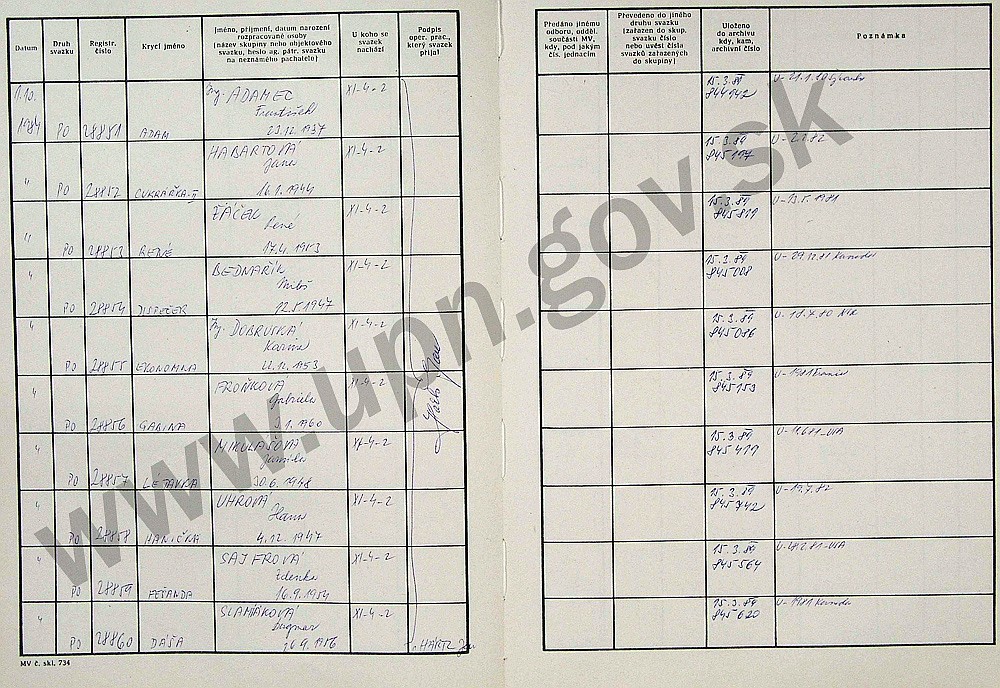 Datum
Druh
svazku
Registr.
číslo
Krycí jméno
Jméno, příjmení, datum narození
rozpracované osoby
(název skupiny nebo objektového
svazku, heslo ag. pátr. svazku
na neznámého pachatele)
U koho se
svazek
nachází
Podpis
oper. prac.,
který svazek
přijal
Předáno jinému
odboru, odděl.
součásti MV,
kdy, pod jakým
čís. jednacím
Převedeno do jiného
druhu svazku
(zařazen do skup.
svazku číslo
nebo uvést čísla
svazků zařazených
do skupiny)
Uloženo
do archivu
kdy, kam,
archivní číslo
Poznámka
1.10.
1984 PO 28851 ADAM
Ing. ADAMEC
František
23.12.1937
XI-4-2
15.3.89
844942
" PO 28852 CUKRÁŘKA-II
HABARTOVÁ
Jana
16.1.1944
XI-4-2
15.3.89
845197
" PO 28853 RENÉ
ŽÁČEK
René
17.4.1953
XI-4-2
15.3.89
845899
U-13.5.1981
" PO 28854 DISPEČER
BEDNAŘÍK
Miloš
12.5.1947
XI-4-2
15.3.89
845008
U-29.12.81 Kanada
" PO 28855 EKONOMKA
Ing. DOBRUSKÁ
Karina
22.12.1953
XI-4-2
15.3.89
845086
U-18.7.80
" PO 28856 GABINA
FROŇKOVÁ
Gabriela
3.1.1960
XI-4-2
15.3.89
845153
U-1981
" PO 28857 LETAVKA
MIKULÁŠOVÁ
Jarmila
30.6.1948
XI-4-2
15.3.89
845499
" PO 28858 HANIČKA
UHROVÁ
Hana
4.12.1947
XI-4-2
15.3.89
845742
U-19.7.82
" PO 28859 FEŠANDA
SAJFROVÁ
Zdenka
16.9.1954
XI-4-2
15.3.89
845564
" PO 28860 DÁŠA
SLAMĚKOVÁ
Dagmar
26.9.1956
XI-4-2
HÁRTL Jan
15.3.89
845620
U-1981 Kanada
MV č. skl. 734
www.upn.gov.sk